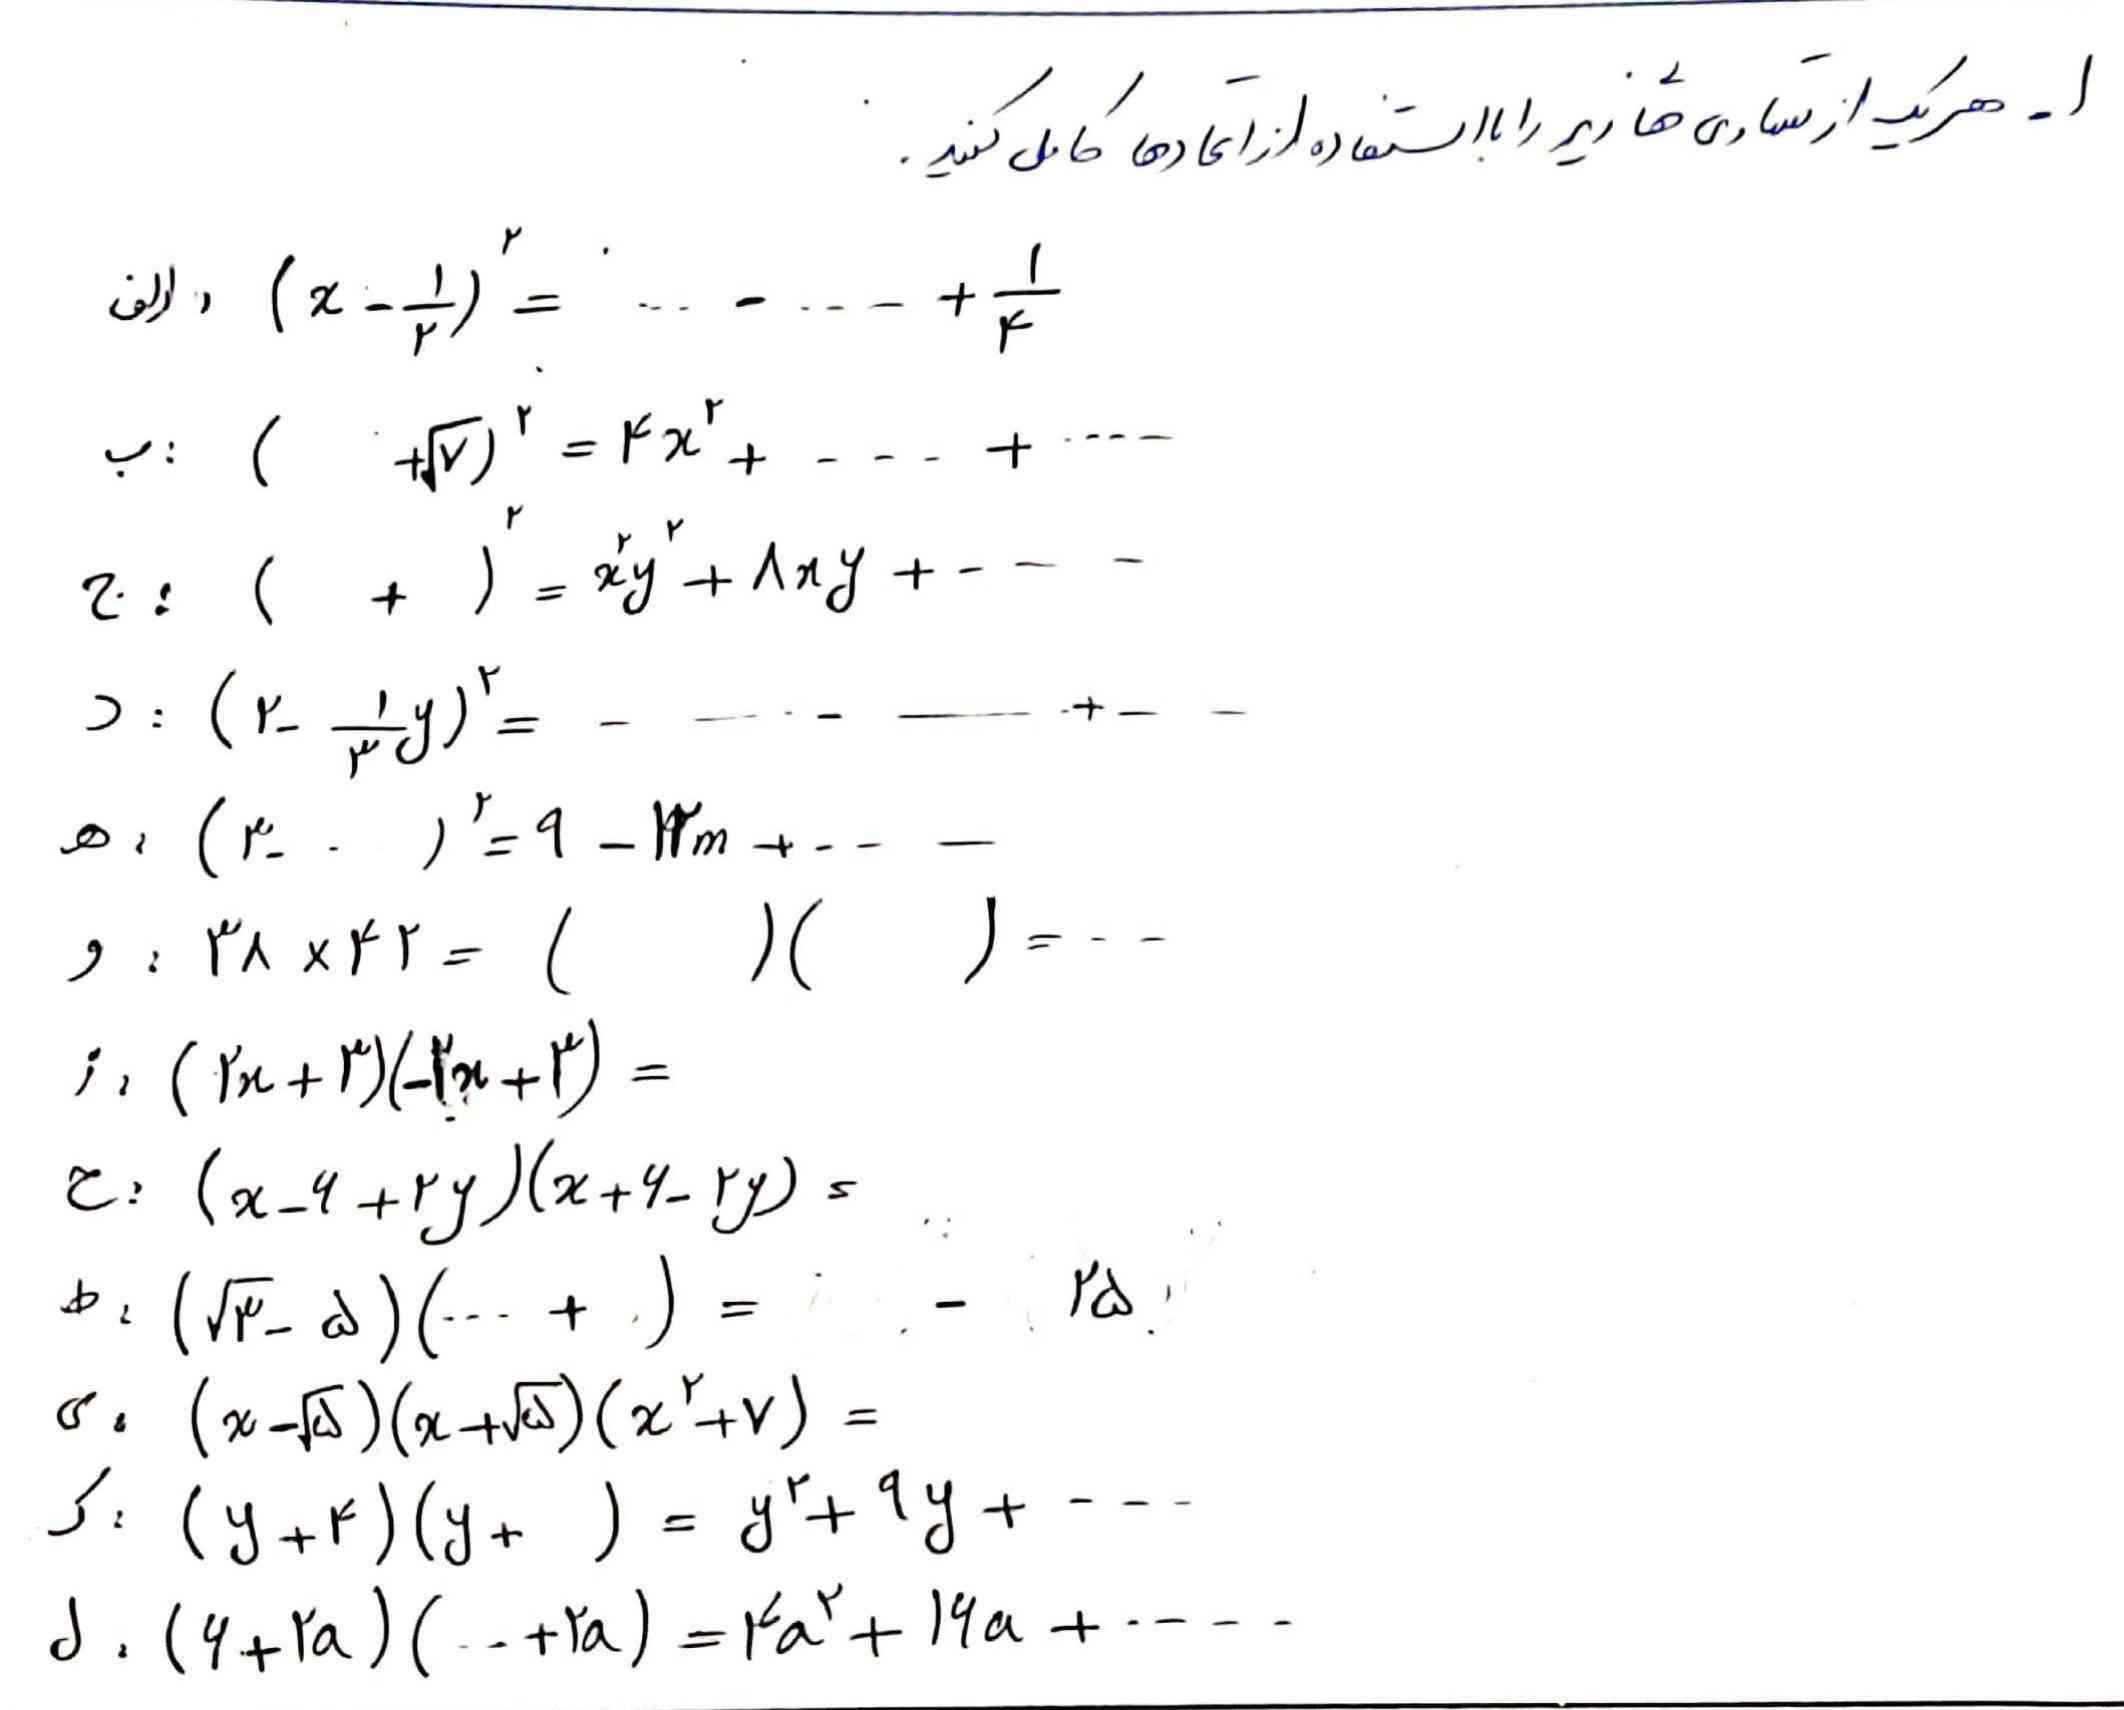 ۱- هر یک از تساوی های زیر را با استفاده از اتحادها کامل کنید.
الف: (x - ۱/۲)^۲ = ... - .... + ۱/۴
ب: (   +√۷)^۲ = ۴x^۲ + .... + .....
ج: (   +   )^۲ = x^۲y^۲ + ۸xy + ....
د: (۲ - ۱/۳ y)^۲ = ... - ... + ...
ه: (۳ - ..  )^۲ = ۹ - ۱۲m + ....
و: ۳۸ × ۴۲ = (     )(     ) = ...
ز: (۲x + ۳)(-۲x + ۳) =
ح: (x - ۶ + ۲y)(x + ۶ - ۲y) =
ط: (√۳ - ۵)(... +   ) =    - ۲۵
ی: (x - √۵)(x + √۵)(x^۲ + ۷) =
ک: (y + ۴)(y +   ) = y^۲ + ۹y + ....
ل: (۶ + ۲a)(... + ۲a) = ۴a^۲ + ۱۶a + .....